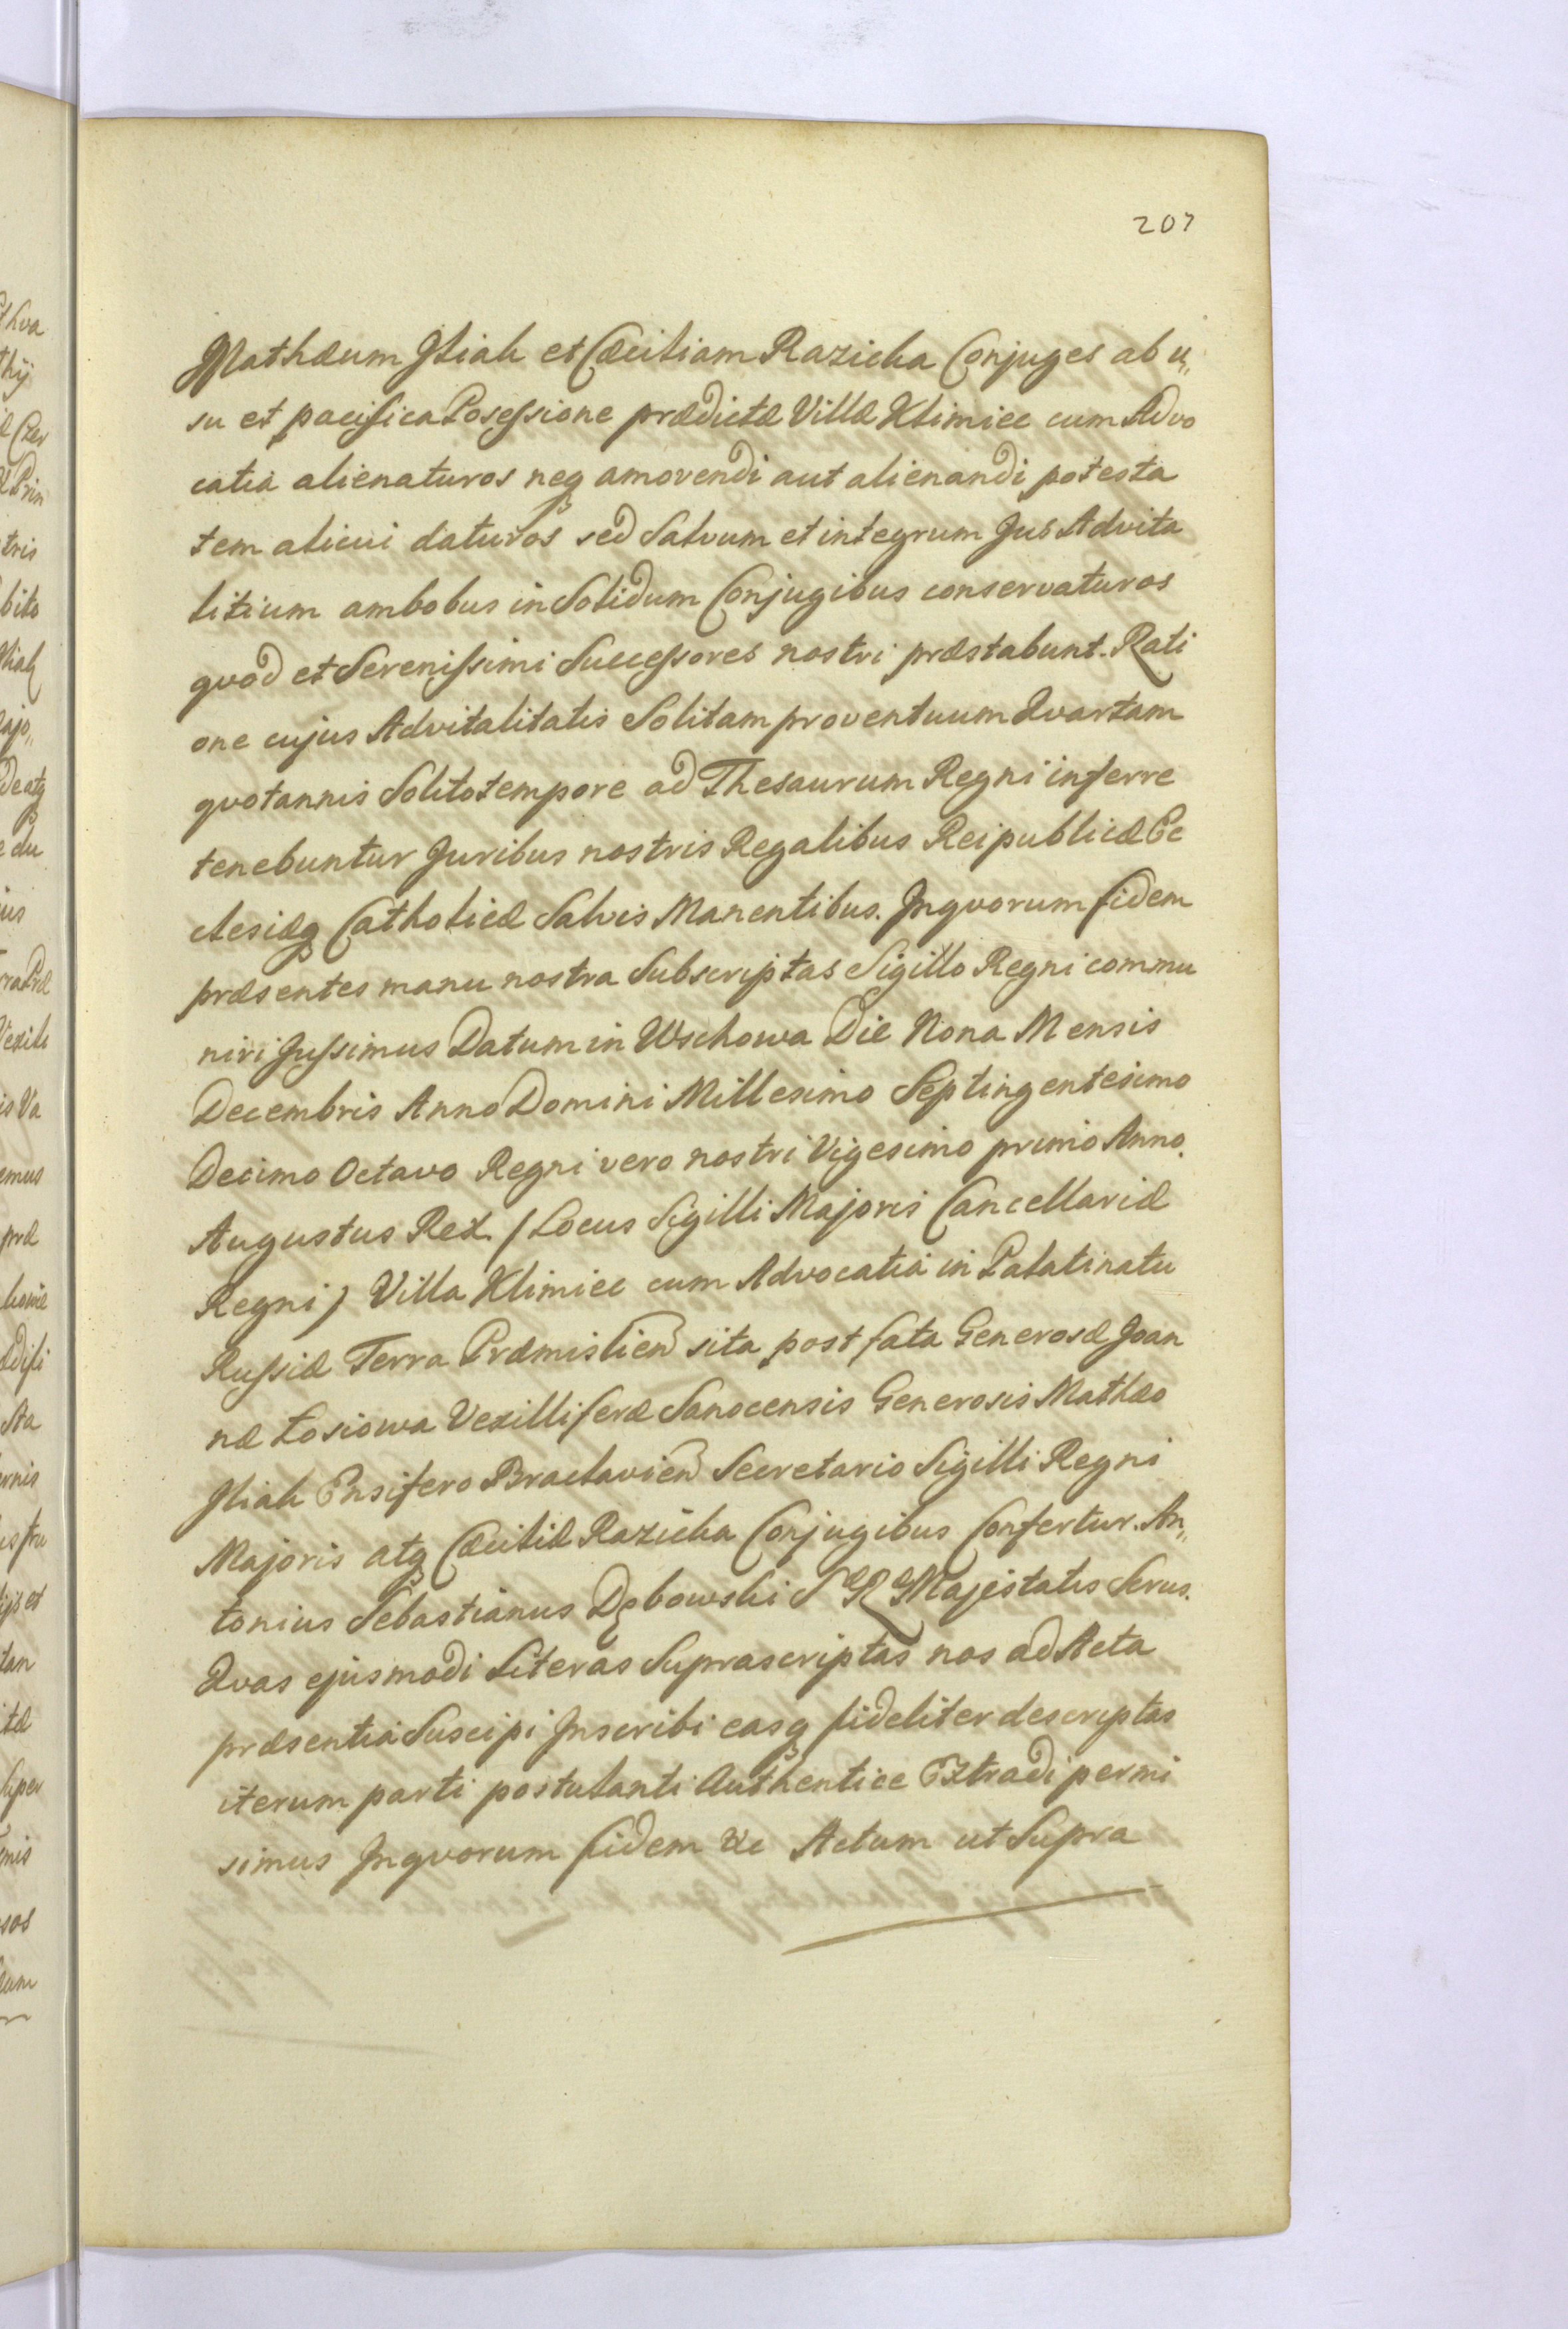 207
Mathæum Jliak et Cæciliam Razicka Conjuges ab u„
su et pacifica Posessione prædictæ Villæ Klimiec cum Advo
catia alienaturos neq amovendi aut alienandi potesta
tem alicui daturos sed Salvum et integrum Jus Advita
litium ambobus in Solidum Conjugibus conservaturos
qvod et Serenissimi Successores nostri præstabunt. Rati
one cujus Advitalitatis Solitam proventuum Qvartam
qvotannis Solito tempore ad Thesaurum Regni inferre
tenebuntur Juribus nostris Regalibus Reipublicæ Ec
clesiæq Catholicæ Salvis Manentibus. Jnqvorum fidem
præsentes manu nostra Subscriptas Sigillo Regni commu
niri Jussimus Datum in Wschowa Die Nona Mensis
Decembris Anno Domini Millesimo Septingentesimo
Decimo Octavo Regni vero nostri Vigesimo primo Anno.
Augustus Rex. / Locus Sigilli Majoris Cancellariæ
Regni / Villa Klimiec cum Advocatia in Palatinatu
Russiæ Terra Præmislien sita post fata Generosæ Joan
næ Łosiowa Vexilliferæ Sanocensis Generosis Mathæo
Jliak Ensifero Braclavien Secretario Sigilli Regni
Majoris atq Cæciliæ Razicka Conjugibus Confertur. An„
tonius Sebastianus Dębowski S R Majestatis Srus.
Qvas ejusmodi Literas Suprascriptas nos ad Acta
præsentia Suscipi Jnscribi easq fideliter descriptas
iterum parti postulanti Authentice Extradi permi
simus Jnqvorum fidem &c Actum ut Supra